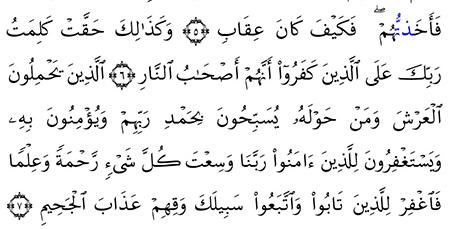 فَأَخَذتُّهُمْ ۖ فَكَيْفَ كَانَ عِقَابِ ﴿٥﴾ وَكَذَٰلِكَ حَقَّتْ كَلِمَتُ
رَبِّكَ عَلَى ٱلَّذِينَ كَفَرُوٓا۟ أَنَّهُمْ أَصْحَـٰبُ ٱلنَّارِ ﴿٦﴾ ٱلَّذِينَ يَحْمِلُونَ
ٱلْعَرْشَ وَمَنْ حَوْلَهُۥ يُسَبِّحُونَ بِحَمْدِ رَبِّهِمْ وَيُؤْمِنُونَ بِهِۦ
وَيَسْتَغْفِرُونَ لِلَّذِينَ ءَامَنُوا۟ رَبَّنَا وَسِعْتَ كُلَّ شَىْءٍ رَّحْمَةً وَعِلْمًا
فَٱغْفِرْ لِلَّذِينَ تَابُوا۟ وَٱتَّبَعُوا۟ سَبِيلَكَ وَقِهِمْ عَذَابَ ٱلْجَحِيمِ ﴿٧﴾